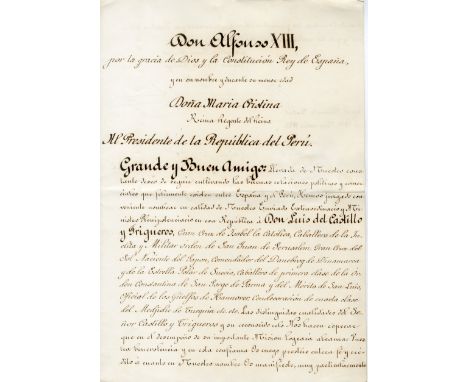 Don Alfonso XIII,
por la gracia de Dios y la Constitución Rey de España,
y en su nombre y durante su menor edad
Doña María Cristina
Reina Regente del Reino
Al Presidente de la República del Perú.
Grande y Buen Amigo: Llevada de Nuestro cons-
tante deseo de seguir cultivando las buenas relaciones políticas y comer-
ciales que felizmente existen entre España y el Perú, Hemos juzgado con-
veniente nombrar en calidad de Nuestro Enviado Extraordinario y Mi-
nistro Plenipotenciario en esa República á Don Luis del Castillo
y Trigueros, Gran Cruz de Isabel la Católica, Caballero de la Ín-
clita y Militar orden de San Juan de Jerusalém, Gran Cruz del
Sol Naciente del Japon, Comendador del Danebrog de Dinamarca
y de la Estrella Polar de Suecia, Caballero de primera clase de la Or-
den Constantina de San Jorge de Parma y del Mérito de San Luis,
Oficial de los Güelfos de Hannover, Condecoración de cuarta clase
del Medjidie de Turquía etc. etc. Las distinguidas cualidades del Se-
ñor Castillo y Trigueros y su reconocido celo Nos hacen esperar
que en el desempeño de su importante Misión logrará alcanzar Vues-
tra benevolencia y en esta confianza Os ruego prestéis entera fé y cré-
dito á cuanto en Nuestro nombre Os manifieste, muy particularmente